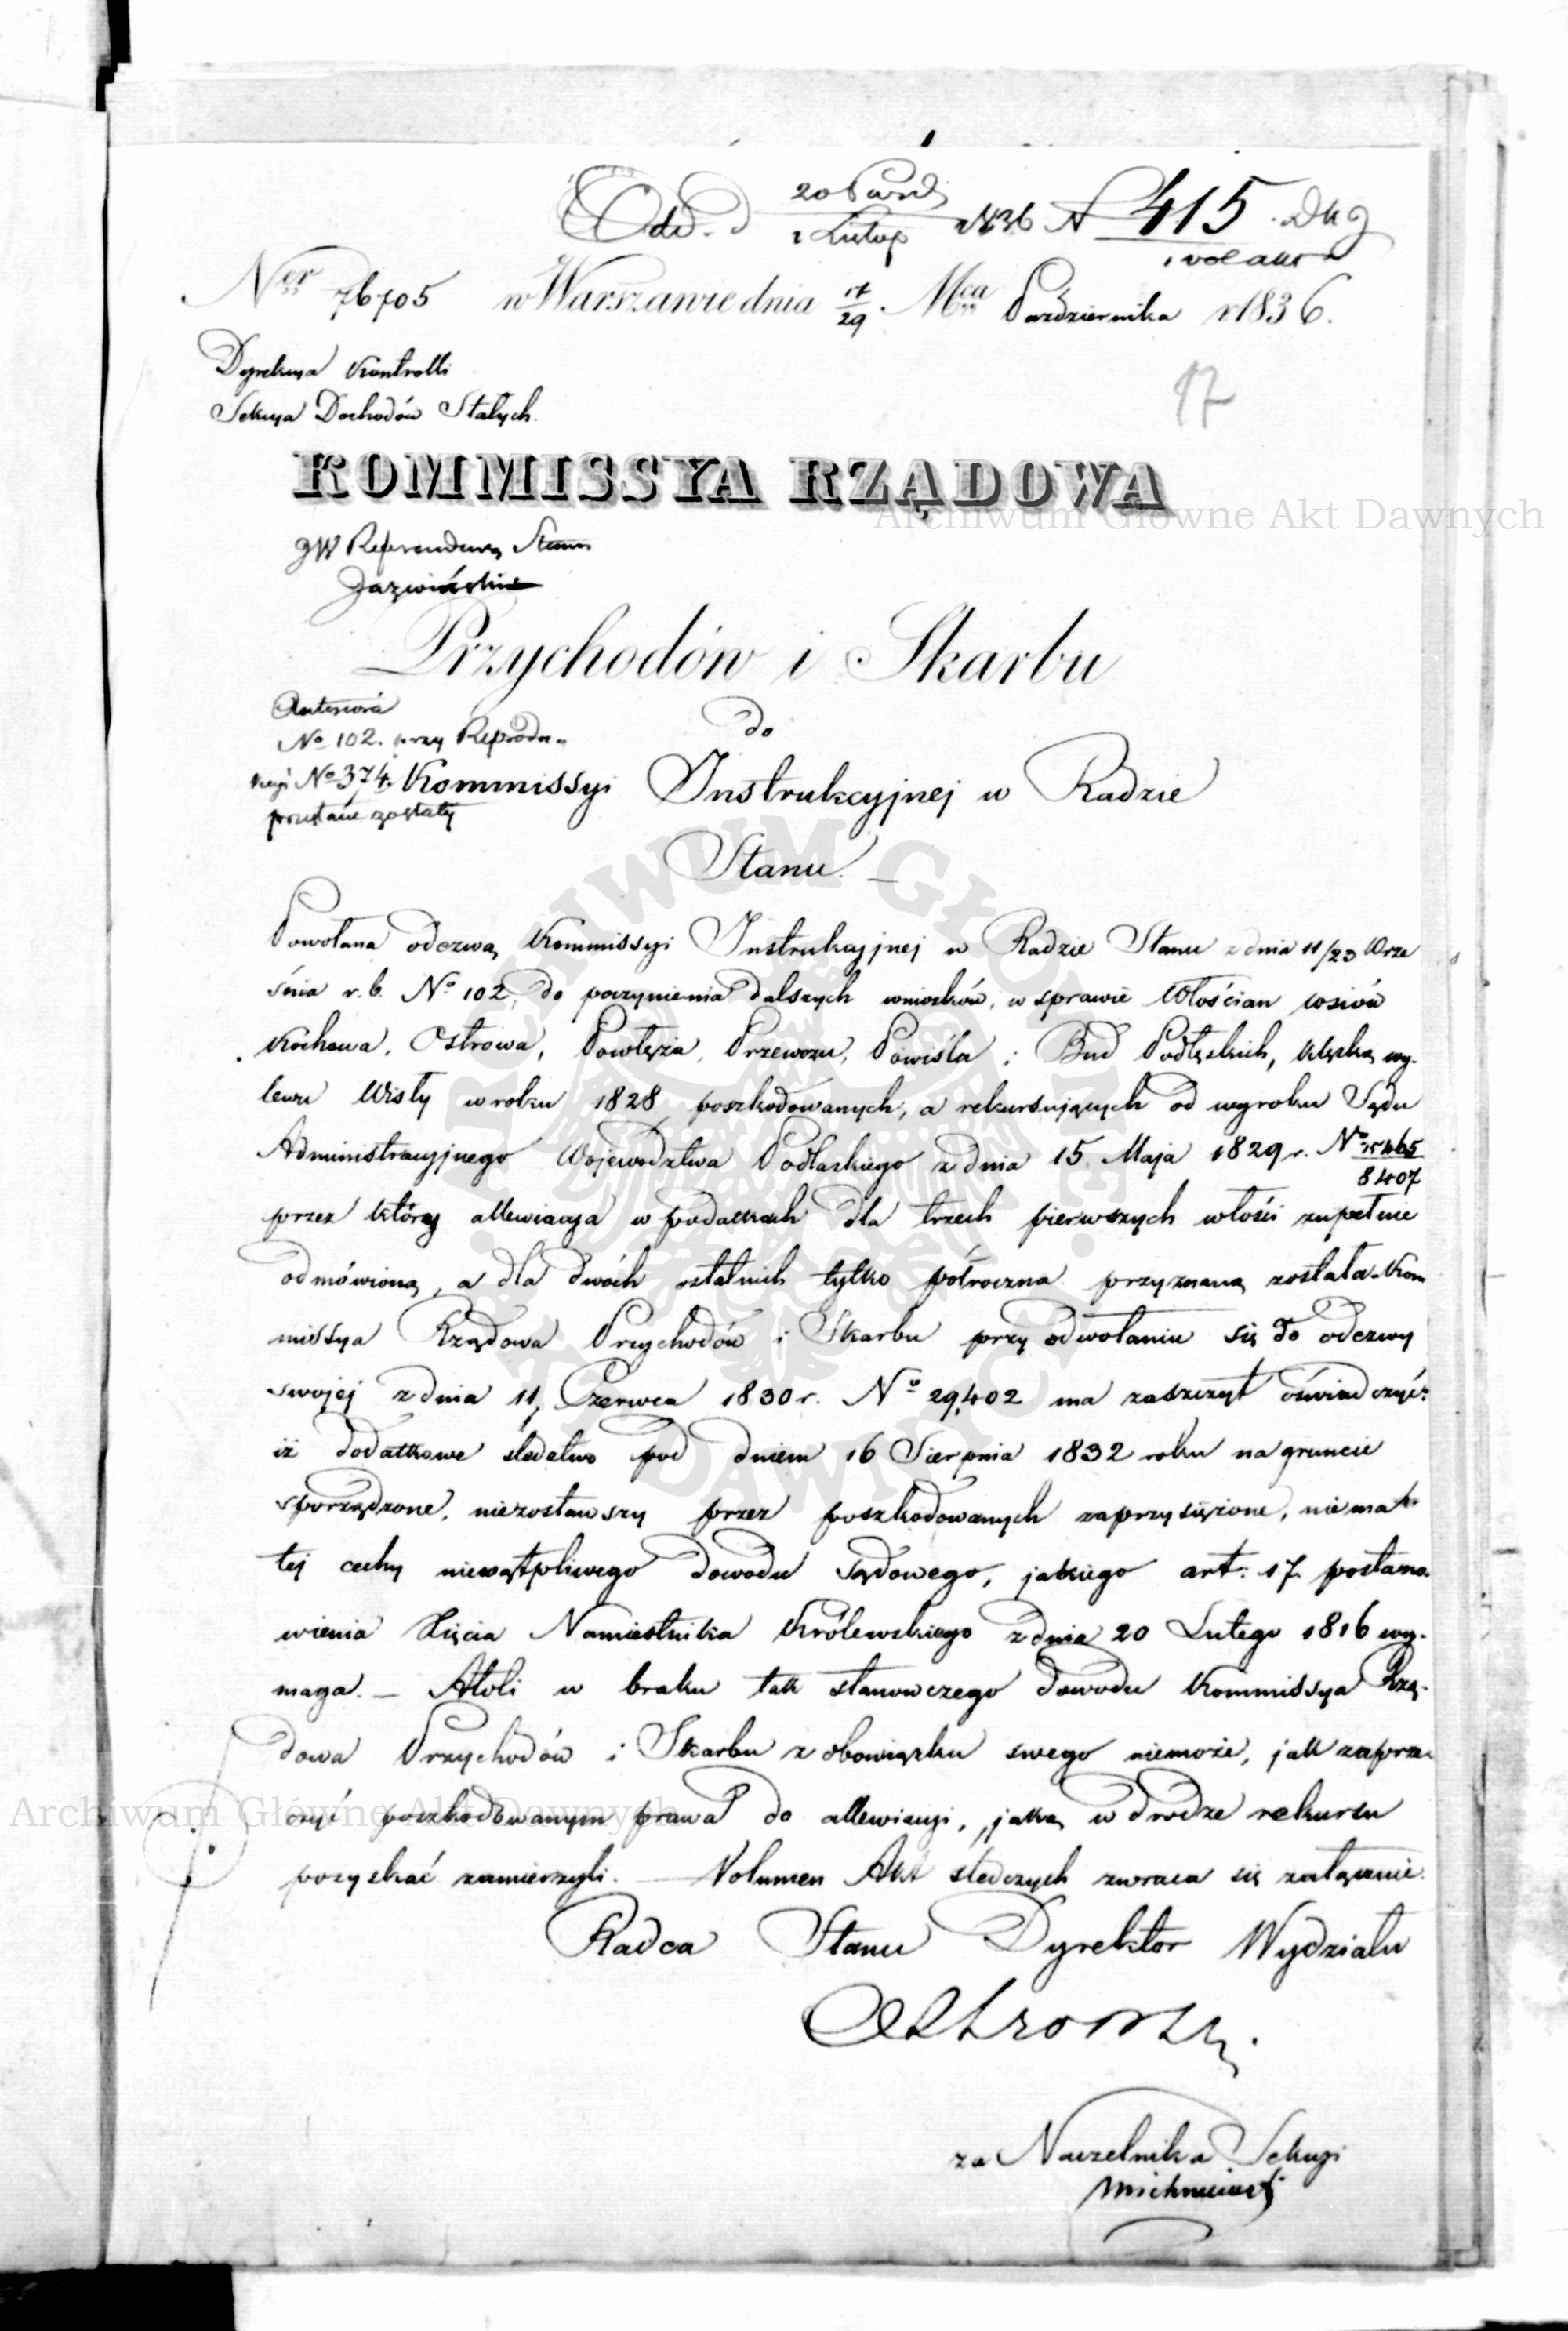 Odd. d 20 Paźd / 1 Listop 1836 N 415. Dkg
1 vol akt
Ner 76705 w Warszawie dnia 17/29 Mca Października r 1836.
Dyrekcya Kontrolli
Sekcya Dochodów Stałych.
17
KOMMISSYA RZĄDOWA
JW Referendarz Stanu
Przychodów i Skarbu
Anteriora
No 102. przy Reprodu-
kcyi No 374.
do
Kommissyi Instrukcyjnej w Radzie
Stanu. —
Powołana odezwą Kommissyi Instrukcyjnej w Radzie Stanu z dnia 11/23 Wrze
śnia r. b. No 102, do poczynienia dalszych wniosków, w sprawie Włościan wsiów
Kochowa, Ostrowa, Powłęża, Przewozu, Powiśla i Bud Podłęskich, klęską wy-
lewu Wisły w roku 1828 poszkodowanych, a rekursujących od wyroku Sądu
Administracyjnego Województwa Podlaskiego z dnia 15 Maja 1829 r. No 15465/8407
przez który allewiacya w podatkach dla trzech pierwszych włości zupełnie
odmówioną, a dla dwóch ostatnich tylko półroczna przyznaną została - Kom
missya Rządowa Przychodów i Skarbu przy odwołaniu się do odezwy
swojej z dnia 11, Czerwca 1830 r. No 29,402 ma zaszczyt oświadczyć:
iż dodatkowe śledztwo pod dniem 16 Sierpnia 1832 roku na gruncie
sporządzone, niezostawszy przez poszkodowanych zaprzysiężone, niema
tej cechy niewątpliwego dowodu sądowego, jakiego art: 17. postano-
wienia Xięcia Namiestnika Królewskiego z dnia 20 Lutego 1816 wy-
maga. — Atoli w braku tak stanowczego dowodu Kommissya Rzą-
dowa Przychodów i Skarbu z obowiązku swego niemoże, jak zaprze-
czyć poszkodowanym prawa do allewiacyi, jaką w drodze rekursu
pozyskać zamierzyli. — Volumen Akt śledczych zwraca się załącznie.
Radca Stanu Dyrektor Wydziału
za Naczelnika Sekcyi
Archiwum Główne Akt Dawnych
Archiwum Główne Akt Dawnych
ARCHIWUM GŁÓWNE AKT DAWNYCH